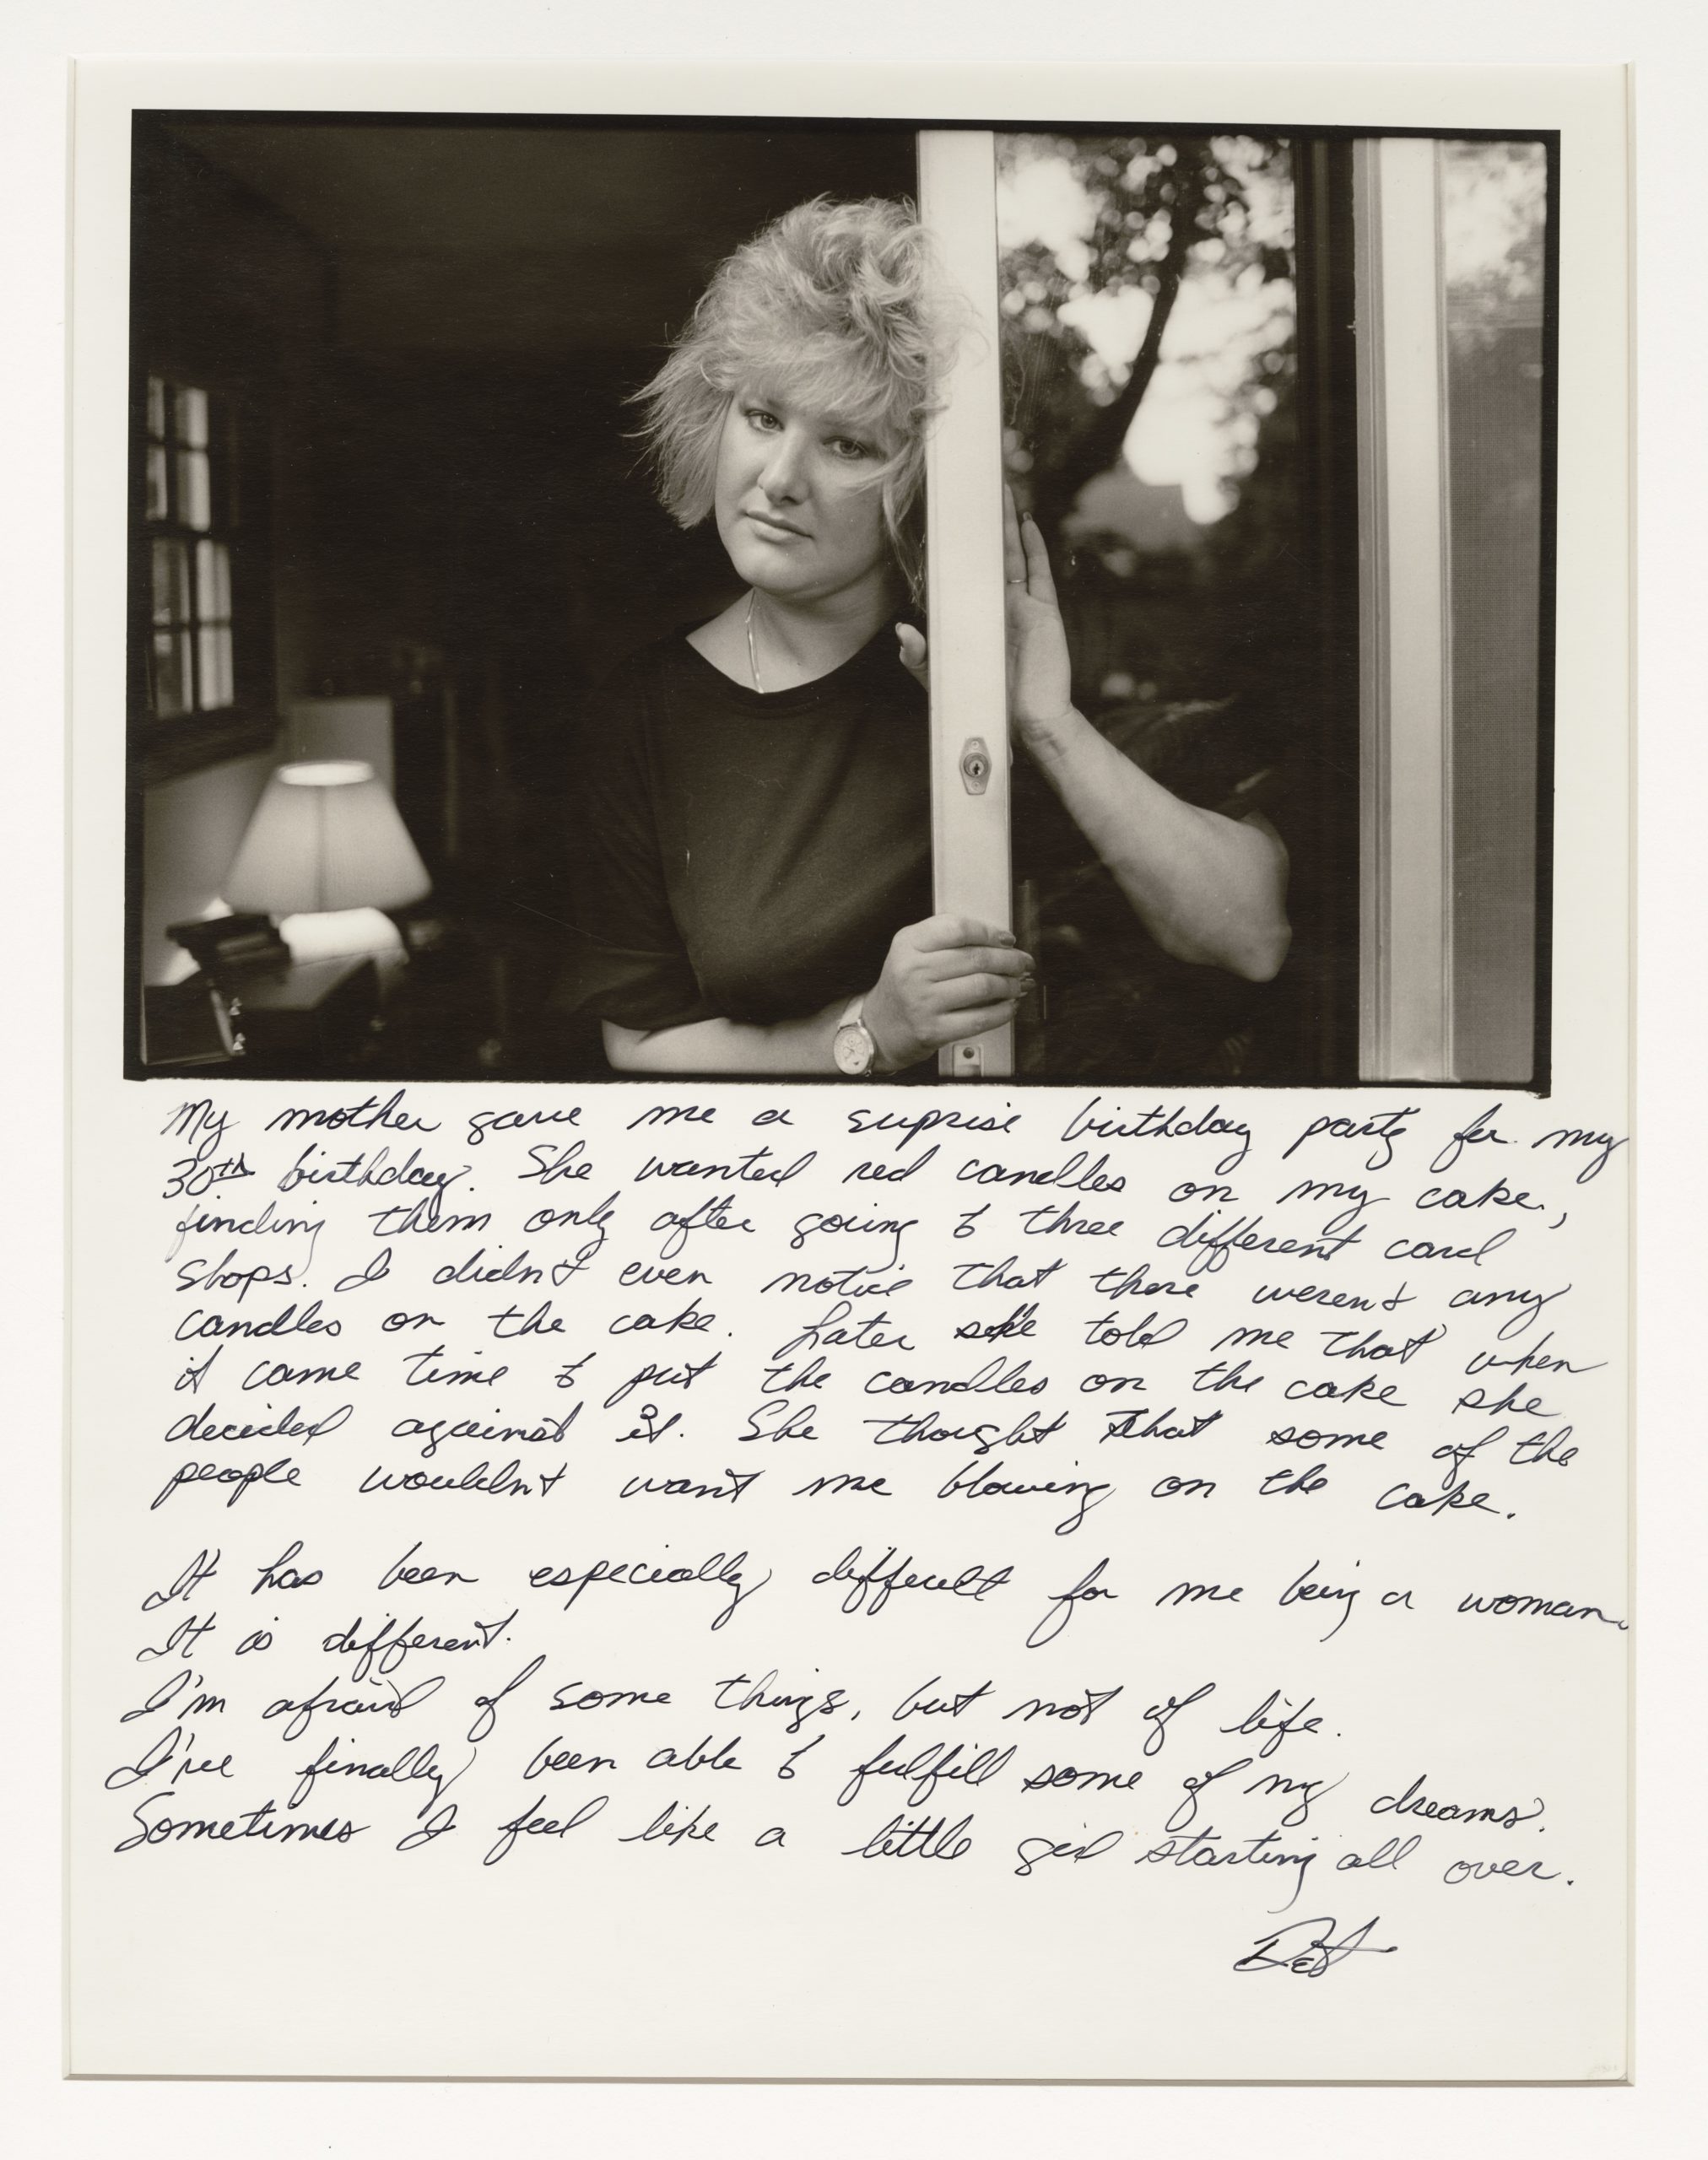 My mother gave me a suprise birthday party for my
30th birthday. She wanted red candles on my cake,
finding them only after going to three different card
shops. I didn't even notice that there weren't any
candles on the cake. Later she told me that when
it came time to put the candles on the cake she
decided against it. She thought that some of the
people wouldn't want me blowing on the cake.
It has been especially difficult for me being a woman.
It is different.
I'm afraid of some things, but not of life.
I've finally been able to fulfill some of my dreams.
Sometimes I feel like a little girl starting all over.